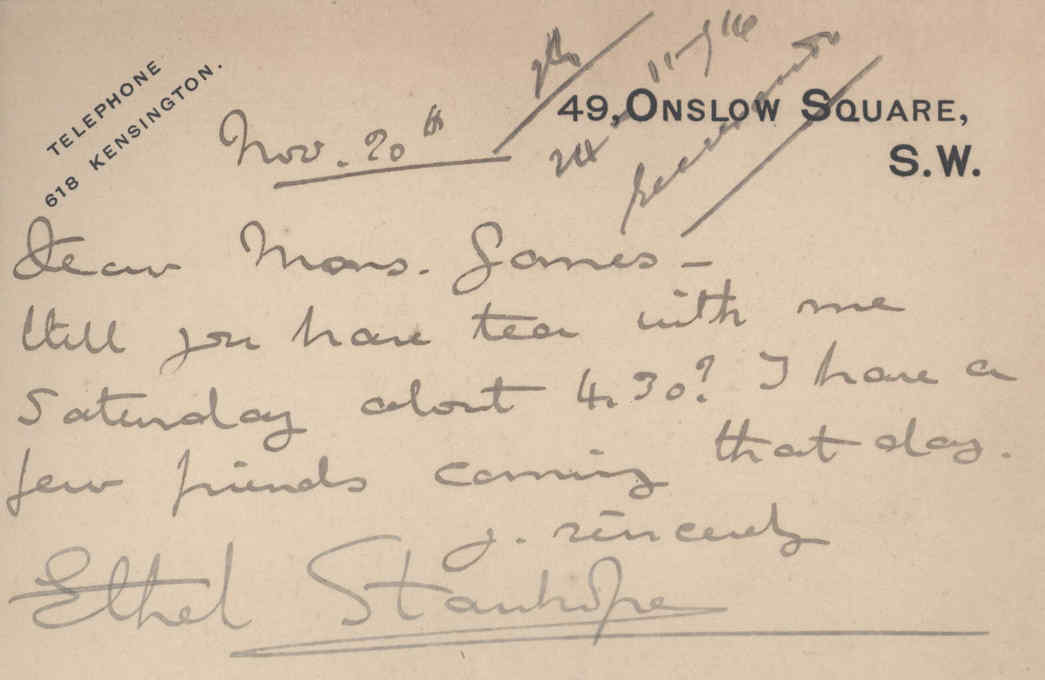 TELEPHONE
618 KENSINGTON.
49, ONSLOW SQUARE,
S.W.
Nov. 20th
Dear Mons.
Will you have tea with me
Saturday about 4.30? I have a
few friends coming that day.
y. sincerely
Ethel Stanhope